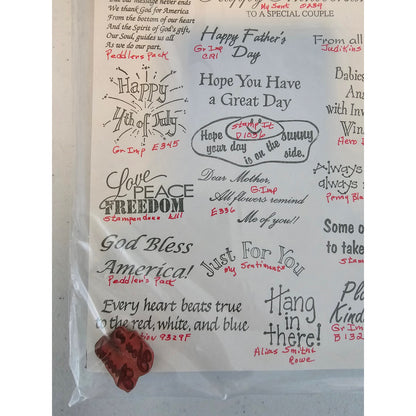 that our message never ends
We thank God for America
From the bottom of our heart
And the Spirit of God's gift,
Our Soul, guides us all
As we do our part.
Peddlers Pack
My Sent
TO A SPECIAL COUPLE
Happy Father's
Day
Gr Imp
From all
Judikins
Happy
4th of July
Gr Imp E345
Hope You Have
a Great Day
Stamp It
D1036
Hope
your day
is on the
sunny
side.
Babies
An
with Inv
Win
Hero
Love
PEACE
FREEDOM
Stampendous
Dear Mother,
G Imp
All flowers remind
E336
Me of you!!
Always
always
Penny Bla
God Bless
America!
Peddler's Pack
Just For You
My Sentiments
Some o
to take
Stam
Every heart beats true
to the red, white, and blue
9329F
Hang
in
there!
Alias Smith &
Rowe
Pl
Kind
Gr Im
B132